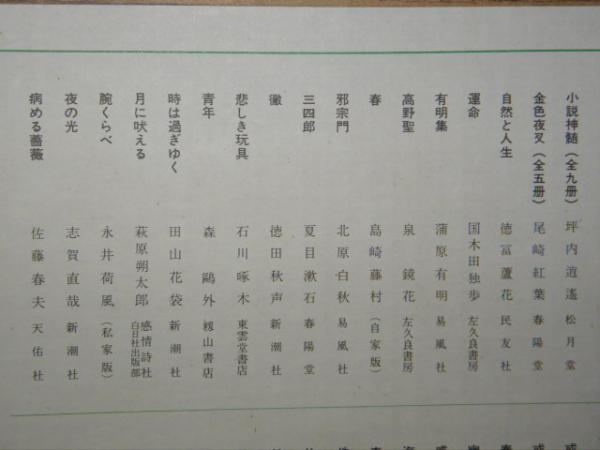 小説神髄（全九册） 坪内逍遙 松月堂
金色夜叉（全五册） 尾崎紅葉 春陽堂
自然と人生 徳冨蘆花 民友社
運命 国木田独歩 左久良書房
有明集 蒲原有明 易風社
高野聖 泉鏡花 左久良書房
春 島崎藤村（自家版）
邪宗門 北原白秋 易風社
三四郎 夏目漱石 春陽堂
黴 徳田秋声 新潮社
悲しき玩具 石川啄木 東雲堂書店
青年 森鷗外 籾山書店
時は過ぎゆく 田山花袋 新潮社
月に吠える 萩原朔太郎 感情詩社 白日社出版部
腕くらべ 永井荷風（私家版）
夜の光 志賀直哉 新潮社
病める薔薇 佐藤春夫 天佑社